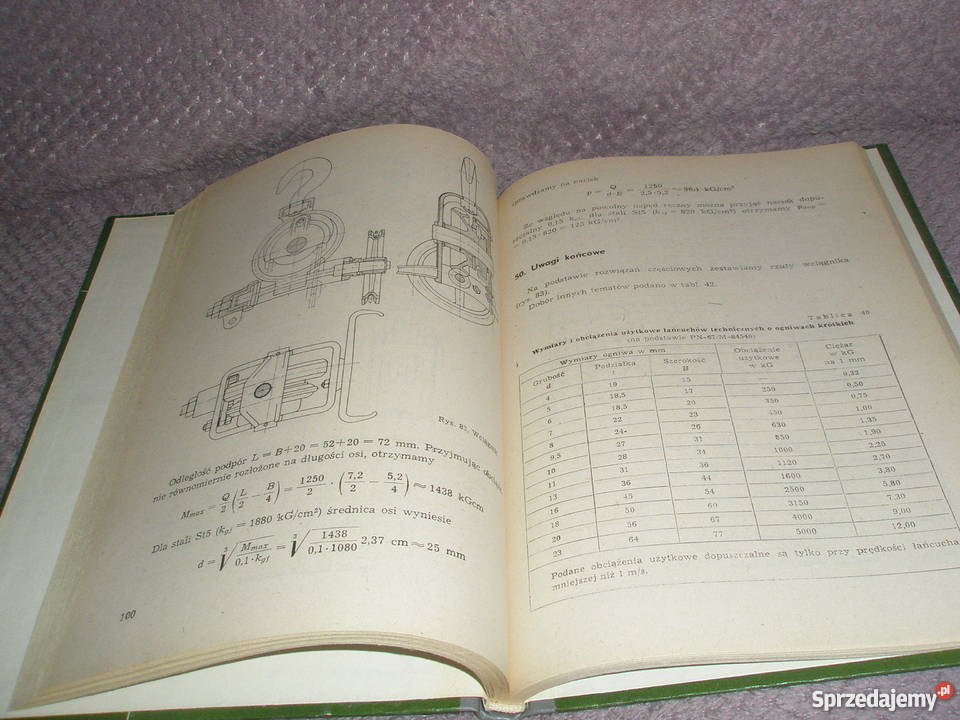 Rys. 83. Wciągnik
Odległość podpór L = B+20 = 52+20 = 72 mm. Przyjmując
nie równomiernie rozłożone na długości osi, otrzymamy
Mmax = Q/2 (L/2 − B/4) = 1250/2 · (7,2/2 − 5,2/4) ≈ 1438 kGcm
Dla stali St5 (kgj = 1880 kG/cm²) średnica osi wyniesie
d = ³√(Mmax/0,1·kgj) = ³√(1438/0,1·1080) 2,37 cm ≈ 25 mm
100
sprawdzamy na nacisk
p = Q/d·B = 1250/2,5·5,2 = 96,1 kG/cm²
Ze względu na powolny napęd ręczny można przyjąć nacisk dopu-
szczalny 0,15 dla stali St5 = 820 kG/cm²) otrzymamy
= 0,15·820 = 125 kG/cm².
50. Uwagi końcowe
Na podstawie rozwiązań częściowych zestawiamy rzuty wciągnika
(rys. 83).
Dobór innych tematów podano w tabl. 42.
Tablica 40
Wymiary i obciążenia użytkowe łańcuchów technicznych o ogniwach krótkich
(na podstawie PN-67/M-84540)
Wymiary ogniwa w mm Obciążenie użytkowe w kG Ciężar w kG na 1 mm
Grubość d Podziałka t Szerokość B
4 19 15 — 0,32
5 18,5 17 250 0,50
6 18,5 20 350 0,75
7 22 23 450 1,00
8 24 26 630 1,35
9,5 27 31 850 1,90
10 28 34 1000 2,25
11 31 36 1120 2,70
13 36 44 1600 3,80
16 45 54 2500 5,80
18 50 60 3150 7,30
20 56 67 4000 9,00
23 64 77 5000 12,00
Podane obciążenia użytkowe dopuszczalne są tylko przy prędkości łańcucha
mniejszej niż 1 m/s.
Sprzedajemy.pl